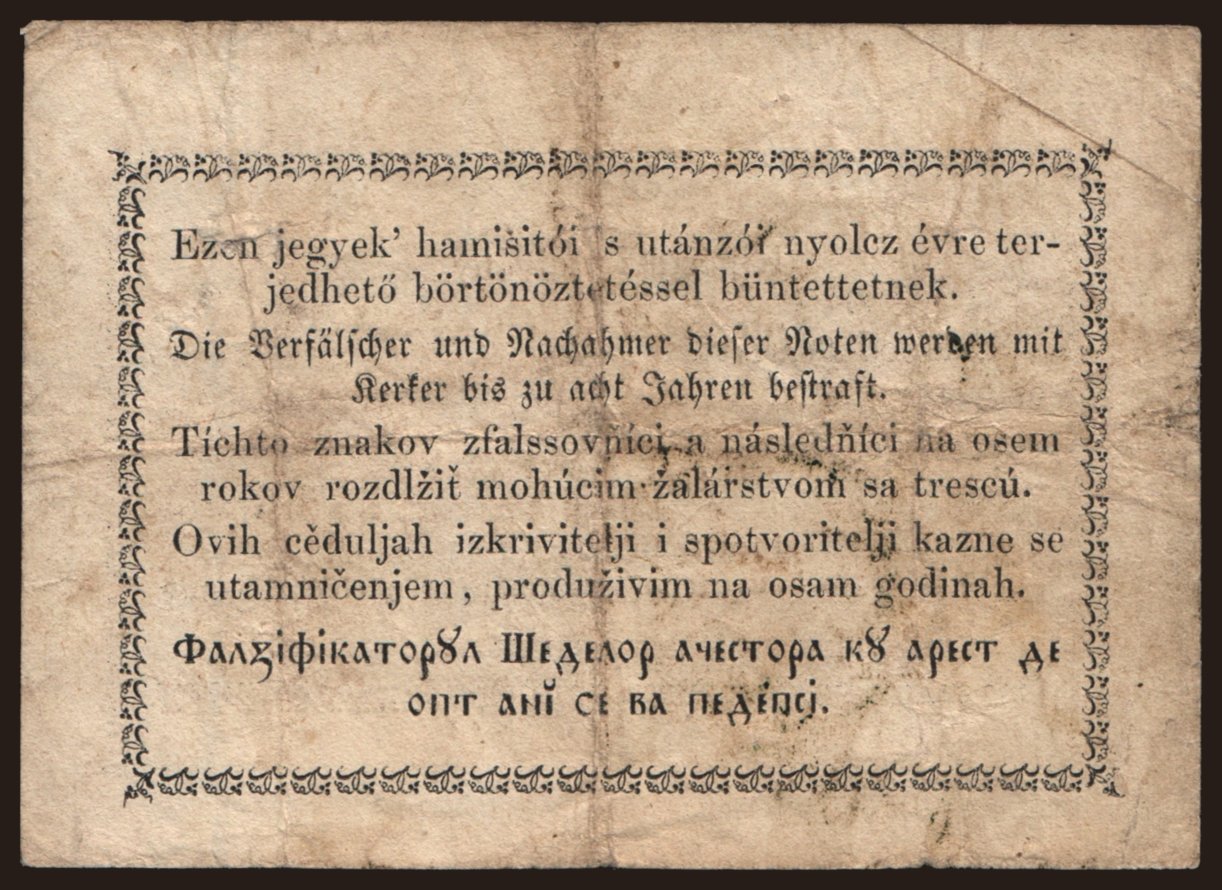 Ezen jegyek’ hamisitói ’s utánzói nyolcz évre ter-
jedhető börtönöztetéssel büntettetnek.
Die Verfälscher und Nachahmer dieser Noten werden mit
Kerker bis zu acht Jahren bestraft.
Tíchto znakov zfalssovňíci a následňíci na osem
rokov rozdlžiť mohúcim žalárstvom sa trescú.
Ovih cěduljah izkrivitelji i spotvoritelji kazne se
utamničenjem, produživim na osam godinah.
Фалꙁіфікаторꙋл Шеделор ачестора кꙋ арест де
опт анĭ се ва педепсі.